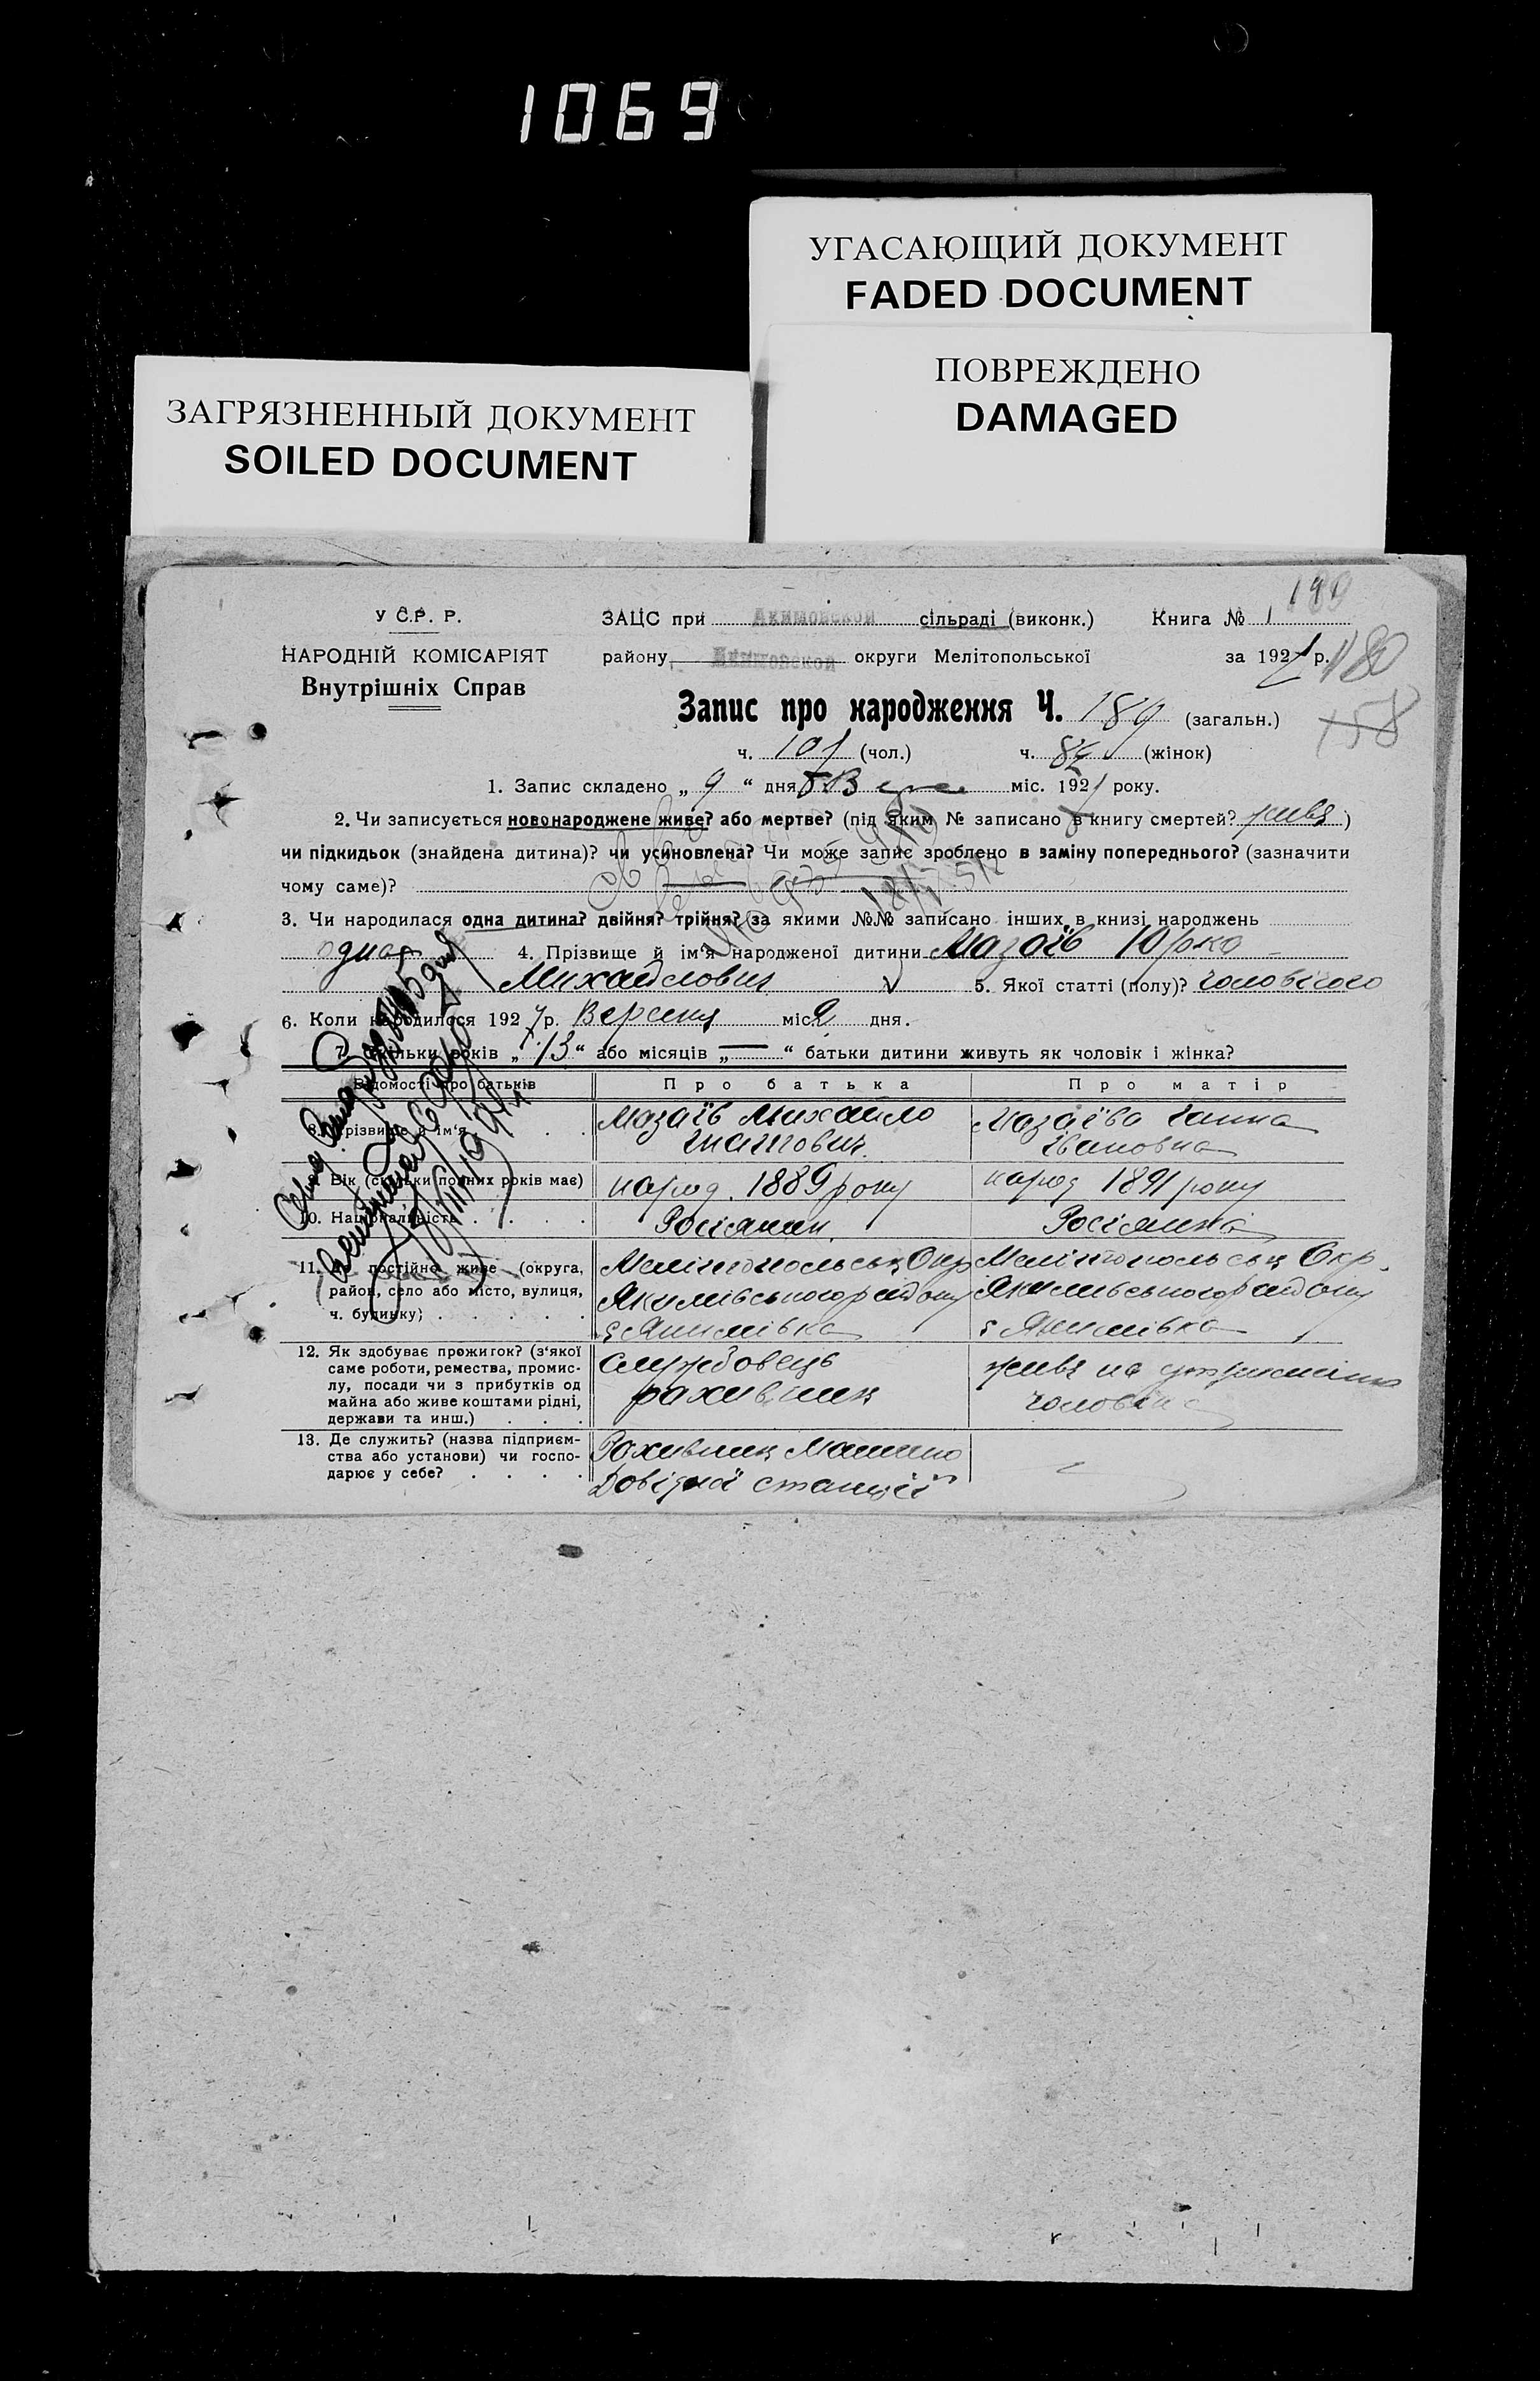 1069
УГАСАЮЩИЙ ДОКУМЕНТ
FADED DOCUMENT
ПОВРЕЖДЕНО
DAMAGED
ЗАГРЯЗНЕННЫЙ ДОКУМЕНТ
SOILED DOCUMENT
У С.Р. Р.
НАРОДНІЙ КОМІСАРІЯТ
Внутрішніх Справ
ЗАЦС при Акимовской сільраді (виконк.) Книга № 1
району Акимовской округи Мелітопольської за 1927 р.
180
158
Запис про народження Ч. 189 (загальн.)
ч. 107 (чол.) ч. 82 (жінок)
1. Запис складено „ 9 “ дня міс. 1927 року.
2. Чи записується новонароджене живе? або мертве? (під яким № записано в книгу смертей? живе )
чи підкидьок (знайдена дитина)? чи усиновлена? Чи може запис зроблено в заміну попереднього? (зазначити
чому саме)?
3. Чи народилася одна дитина? двійня? трійня? за якими №№ записано інших в книзі народжень
одна 4. Прізвище й ім'я народженої дитини Мазаїв Юрко
Михайлович 5. Якої статті (полу)? чоловічого
6. Коли народилося 1927 р. Вересня міс. 2 дня.
7. Скільки років „ 13 “ або місяців „ — “ батьки дитини живуть як чоловік і жінка?
Відомості про батьків Про батька Про матір
8. Прізвище й ім'я Мазаїв Михайло Мазаїва Ганна
Гнатович Івановна
9. Вік (скільки повних років має) народ. 1889 року народ 1891 року
10. Національність Росіянин Росіянка
11. Де постійно живе (округа, Мелітопольськ Окр Мелітопольськ Окр.
район, село або місто, вулиця, Якимівського району Якимівського району
ч. будинку) с Якимівка с Якимівка
12. Як здобуває прожиток? (з'якої службовець живе на утриманні
саме роботи, ремества, промис- рахівник чоловіка
лу, посади чи з прибутків од
майна або живе коштами рідні,
держави та инш.)
13. Де служить? (назва підприєм- Рахівник Машино
ства або установи) чи госпо- станції
дарює у себе?